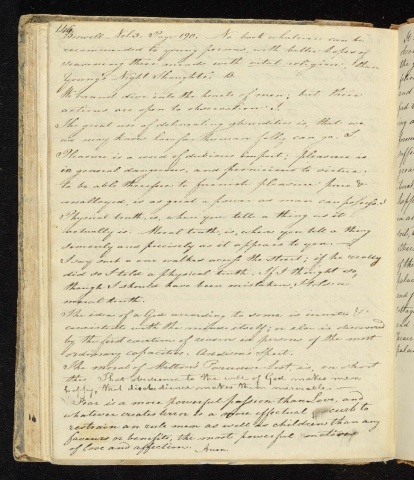 146
Boswell. Vol 3. Page 190. No book whatever can be
recommended to young persons, with better hopes of
seasoning their minds with vital religion, than
Young's Night Thoughts. B.
We cannot dive into the hearts of men, but their
actions are open to observation. J.
The great use of delineating absurdities is, that we
may know how far human folly can go. J
Pleasure is a word of dubious import; pleasure is
in general dangerous, and pernicious to virtue;
to be able therefore to furnish pleasure pure &
unalloyed, is as great a power as man can possess. J
Physical truth, is, when you tell a thing as it
actually is. Moral truth, is, when you tell a thing
sincerely and precisely as it appears to you.
I say such a one walked across the street; if he really
did so I told a physical truth. If I thought so,
though I should have been mistaken, I told a
moral truth.
The idea of a God according to some is innate &
coexistent with the mind itself; or else is discovered
by the first exertion of reason in persons of the most
ordinary capacities. Addison's Spect.
The moral of Milton's Paradise lost is, in short
this. That obedience to the will of God makes men
happy, that disobedience makes them miserable.
Fear is a more powerful passion than Love, and
whatever creates terror is a more effectual curb to
restrain and rule men as well as children than any
favours or benefits, the most powerful motives
of love and affection. Anon.